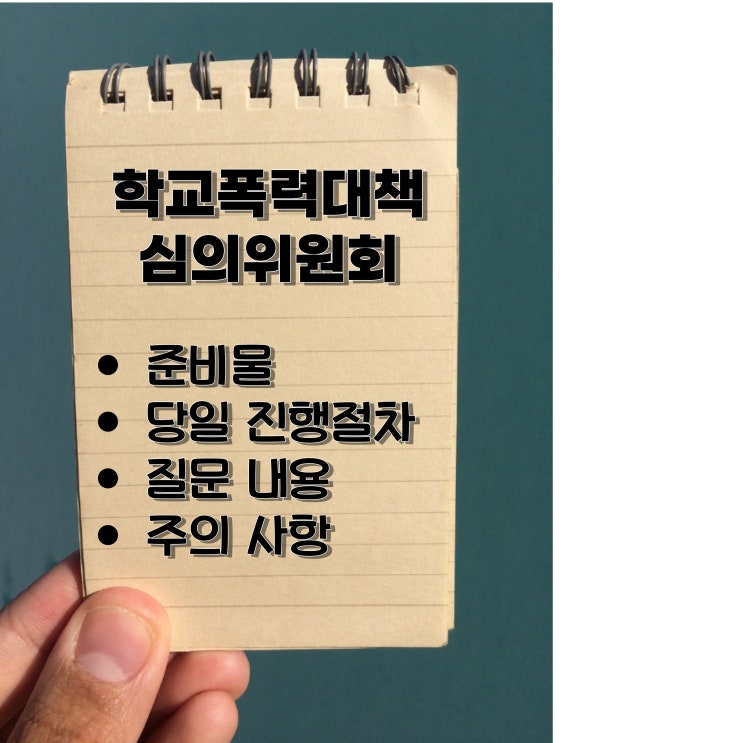 학교폭력대책
심의위원회
• 준비물
• 당일 진행절차
• 질문 내용
• 주의 사항